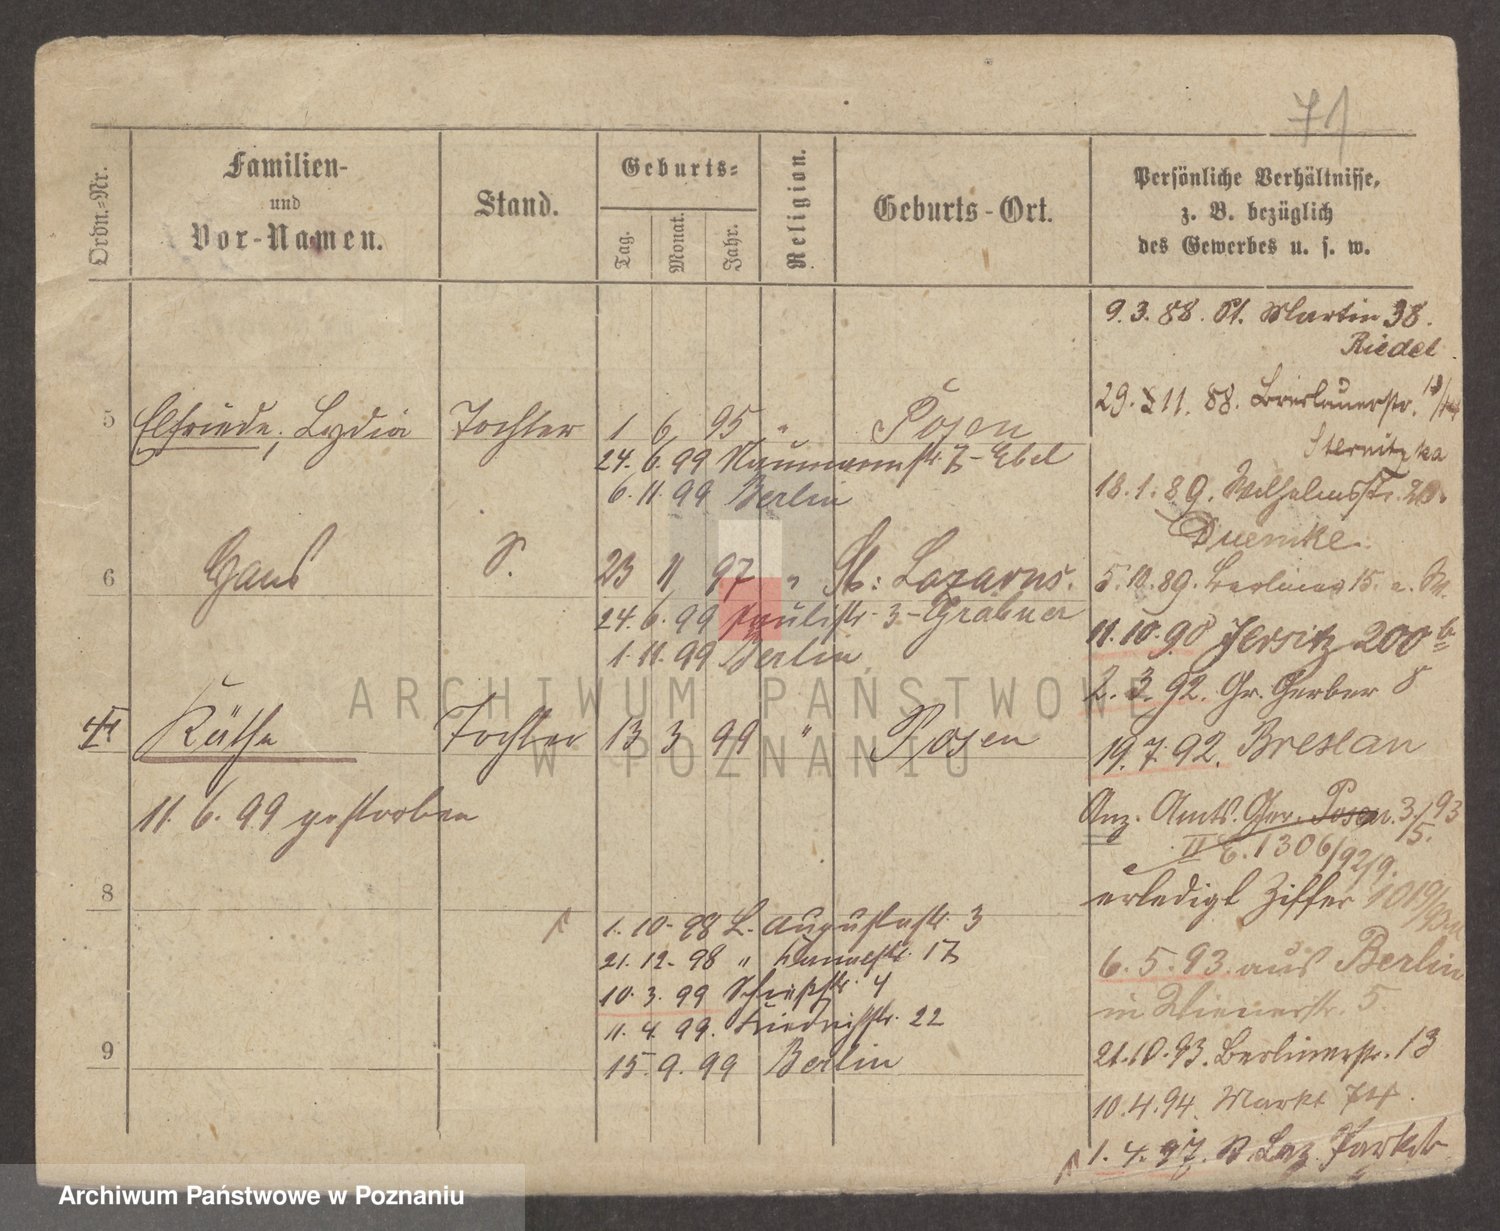 71
Ordn.-Nr.
Familien-
und
Vor-Namen.
Stand.
Geburts-
Tag.
Monat.
Jahr.
Religion.
Geburts-Ort.
Persönliche Verhältnisse,
z. B. bezüglich
des Gewerbes u. s. w.
9. 3. 88. St. Martin 38.
Riedel.
29. 11. 88. Breslauerstr.
Sternitzka
5 Elfriede, Lydia Tochter 1 6 95 " Posen
24. 6. 99 Naumannstr. 7 - Ebel
6. 11. 99 Berlin
18. 1. 89. Wilhelmsstr.
Duemke.
6 Hans S. 23 11 97 " St: Lazarus.
24. 6. 99 Paulistr. 3 - Grabner
1. 11. 99 Berlin
5. 10. 89. Berliner 15.
11. 10. 90 Jersitz 200 b
2. 3. 92. Gr. Gerber 8
Käthe Tochter 13 3 99 " Posen
11. 6. 99 gestorben
19. 7. 92. Breslau
Anz. Amts. Ger. Posen. 3/5. 93
II E. 1306/92/9.
erledigt Ziffer
8
1. 10. 98 L. Augustastr. 3
21. 12. 98 " 17
10. 3. 99 4
11. 4. 99. 22
15. 9. 99 Berlin
6. 5. 93. aus Berlin
in Wienerstr. 5.
9
21. 10. 93. Berlinerstr. 13
10. 4. 94. Markt
1. 4. 97. St Laz. Parkstr
ARCHIWUM PAŃSTWOWE
W POZNANIU
Archiwum Państwowe w Poznaniu